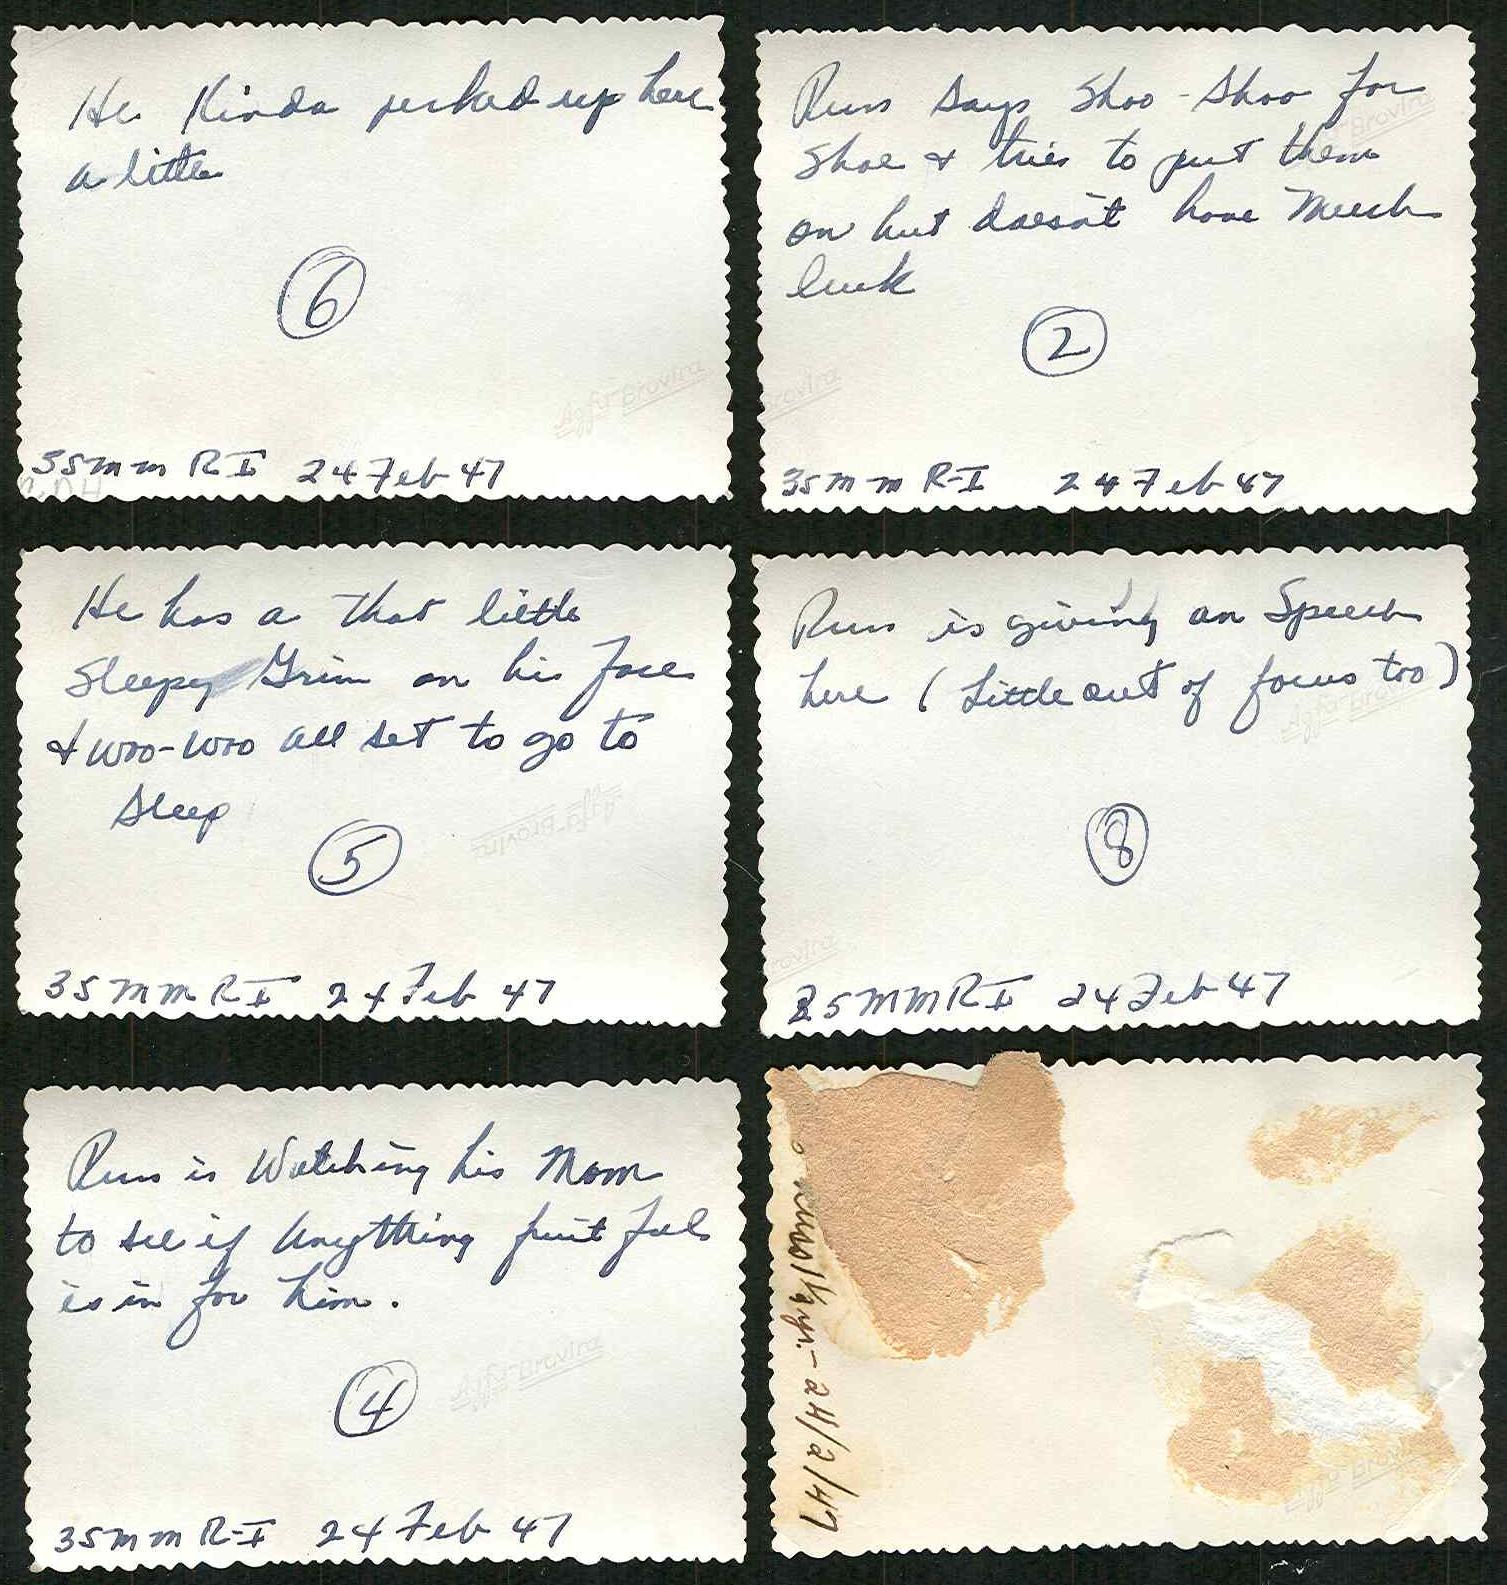 He Kinda perked up here
a little
6
Agfa-Brovira
35mm R I 24 Feb 47
Russ says Shoo-Shoo for
Shoe & tries to put them
on but doesn't have Much
luck
2
Brovira
Brovira
35mm R-I 24 Feb 47
He has a that little
Sleepy Grin on his face
& woo-woo all set to go to
sleep
5
Agfa-Brovira
35mm R I 24 Feb 47
Russ is giving an Speech
here (Little out of focus too)
Agfa-Brovira
8
Brovira
35MMR I 24 Feb 47
Russ is Watching his Mom
to see if Anything fruit ful
is in for him.
4
Agfa-Brovira
35mm R-I 24 Feb 47
24/2/47
Agfa-Brovira